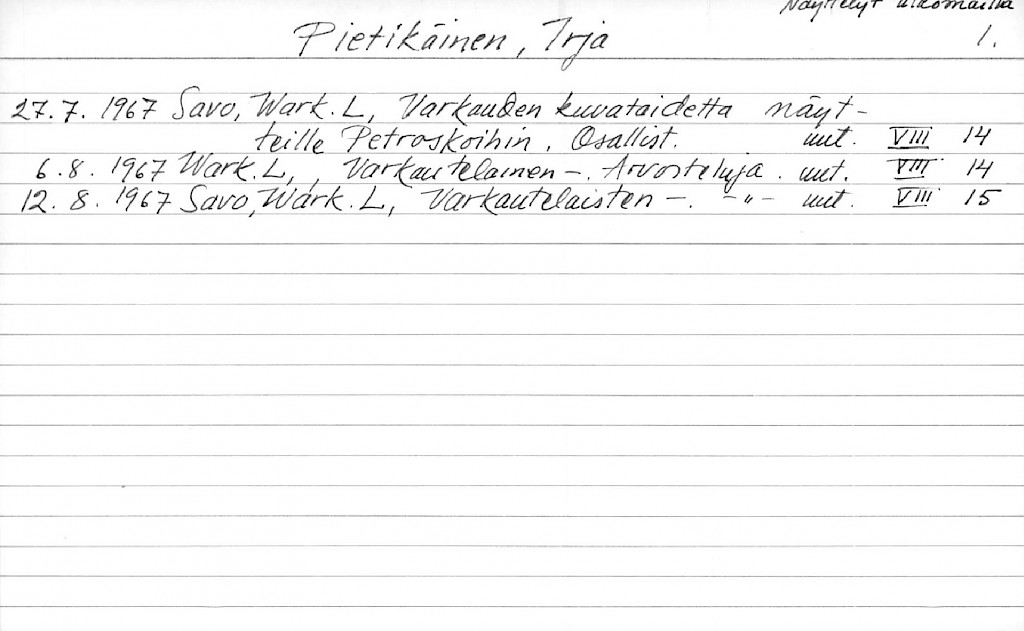 Näyttelyt ulkomailla
Pietikäinen, Irja 1.
27.7. 1967 Savo, Wark. L, Varkauden kuvataidetta näyt-
teille Petroskoihin. Osallist. uut. VIII 14
6.8. 1967 Wark. L, , Varkautelainen -. Arvosteluja. uut. VIII 14
12.8. 1967 Savo, Wark. L, Varkautelaisten -. -"- uut. VIII 15